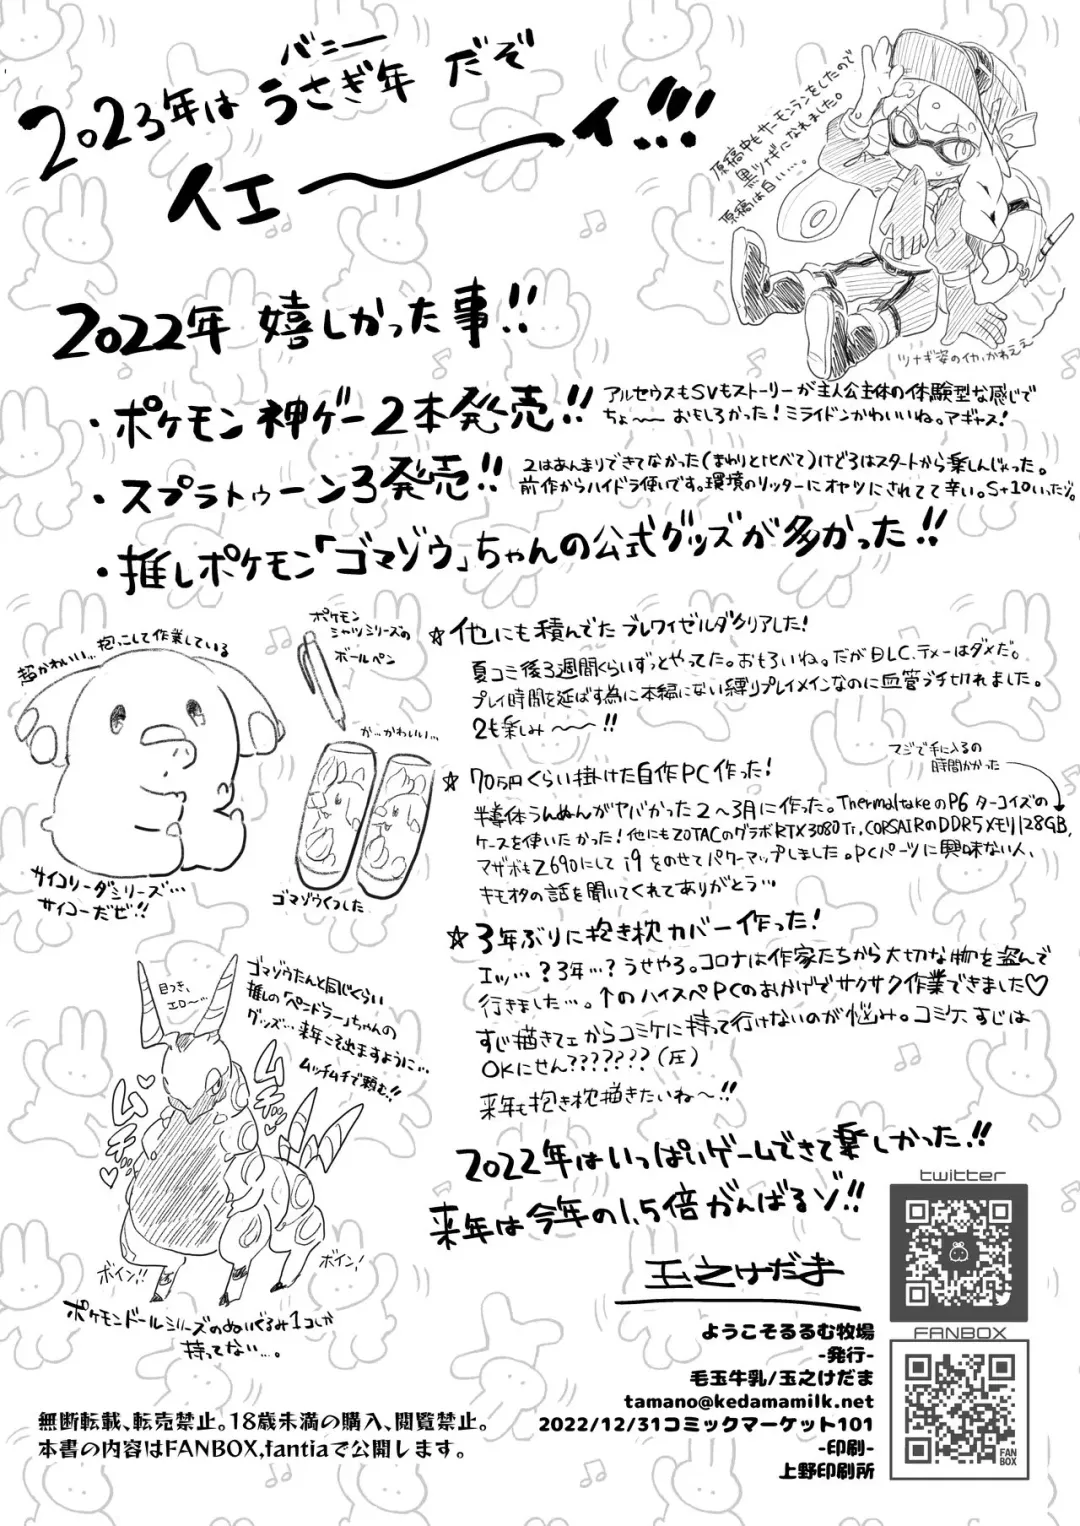 2023年は うさぎ年 だぞ
バニー
イエ〜〜イ!!!
原稿中もサーモンランをしたので
黒ツナギになれました。
原稿は白い…。
ツナギ姿のイカ、かわええ
2022年 嬉しかった事!!
・ポケモン神ゲー2本発売!!
アルセウスもSVもストーリーが主人公主体の体験型な感じで
ちょ〜〜おもしろかった!ミライドンかわいいね。アギャス!
・スプラトゥーン3発売!!
2はあんまりできてなかった(まわりと比べて)けど3はスタートから楽しんじゃった。
前作からハイドラ使いです。環境のリッターにオヤツにされてて辛い。S+10いったゾ。
・推しポケモン「ゴマゾウ」ちゃんの公式グッズが多かった!!
超かわいい…抱っこして作業している
サイコソーダシリーズ…
サイコーだぜ!!
ポケモン
シャツシリーズの
ボールペン
が…かわいい…
ゴマゾウくつした
☆他にも積んでたブレワイゼルダクリアした!
夏コミ後3週間くらいずっとやってた。おもろいね。だがDLC、テメーはダメだ。
プレイ時間を延ばす為に本編にない縛りプレイメインなのに血管ブチ切れました。
2も楽しみ〜〜!!
☆70万円くらい掛けた自作PC作った!
マジで手に入るの
時間かかった
半導体うんぬんがヤバかった2〜3月に作った。ThermaltakeのP6 ターコイズの
ケースを使いたかった!他にもZOTACのグラボRTX3080Ti、CORSAIRのDDR5メモリ128GB、
マザボもZ690にして i9 をのせてパワーマップしました。PCパーツに興味ない人、
キモオタの話を聞いてくれてありがとう…
☆3年ぶりに抱き枕カバー作った!
エッ…?3年…?うせやろ。コロナは作家たちから大切な物を盗んで
行きました…。↑のハイスペPCのおかげでサクサク作業できました♡
すじ描きてェからコミケに持って行けないのが悩み。コミケ、すじは
OKにせん???????(圧)
来年も抱き枕描きたいね〜!!
目つき、
エロ〜…
ゴマゾウたんと同じくらい
推しの「ペンドラー」ちゃんの
グッズ…来年こそ出ますように…
ムッチムチで頼む!!
ムチ♡
ムチッ♡
ボイン!!
ボイン!
ポケモンドールシリーズのぬいぐるみ1コしか
持ってない…。
2022年はいっぱいゲームできて楽しかった!!
来年は今年の1.5倍がんばるゾ!!
玉之けだま
twitter
FANBOX
FAN
BOX
ようこそるるむ牧場
-発行-
毛玉牛乳/玉之けだま
tamano@kedamamilk.net
2022/12/31コミックマーケット101
-印刷-
上野印刷所
無断転載、転売禁止。18歳未満の購入、閲覧禁止。
本書の内容はFANBOX,fantiaで公開します。